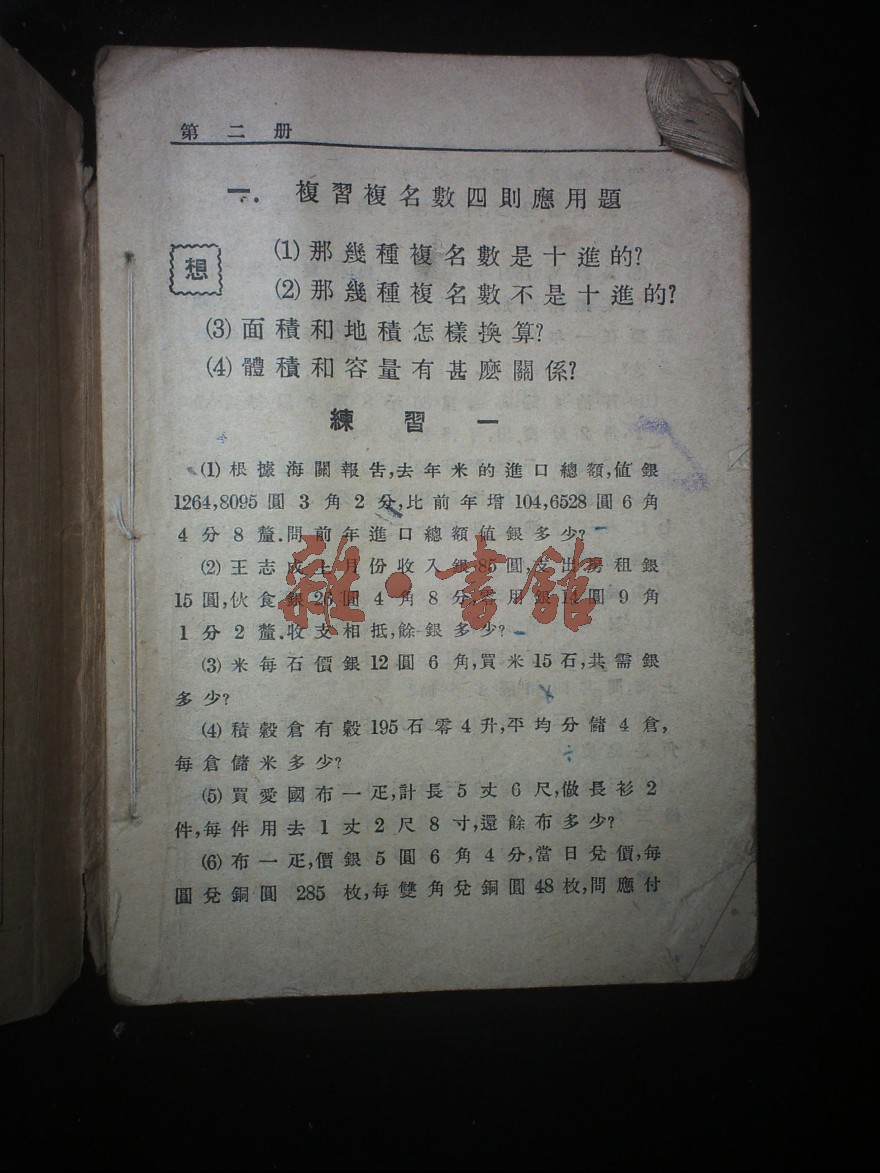 第二册
一. 複習複名數四則應用題
想
(1) 那幾種複名數是十進的?
(2) 那幾種複名數不是十進的?
(3) 面積和地積怎樣換算?
(4) 體積和容量有甚麽關係?
練習一
(1) 根據海關報告,去年米的進口總額,值銀
1264,8095 圓 3 角 2 分,比前年增 104,6528 圓 6 角
4 分 8 釐.問前年進口總額值銀多少?
(2) 王志成上月份收入銀 85 圓,支出房租銀
15 圓,伙食銀 26 圓 4 角 8 分,零用銀 14 圓 9 角
1 分 2 釐.收支相抵,餘銀多少?
(3) 米每石價銀 12 圓 6 角,買米 15 石,共需銀
多少?
(4) 積穀倉有穀 195 石零 4 升,平均分儲 4 倉,
每倉儲米多少?
(5) 買愛國布一疋,計長 5 丈 6 尺,做長衫 2
件,每件用去 1 丈 2 尺 8 寸,還餘布多少?
(6) 布一疋,價銀 5 圓 6 角 4 分,當日兌價,每
圓兌銅圓 285 枚,每雙角兌銅圓 48 枚,問應付
雜·書館